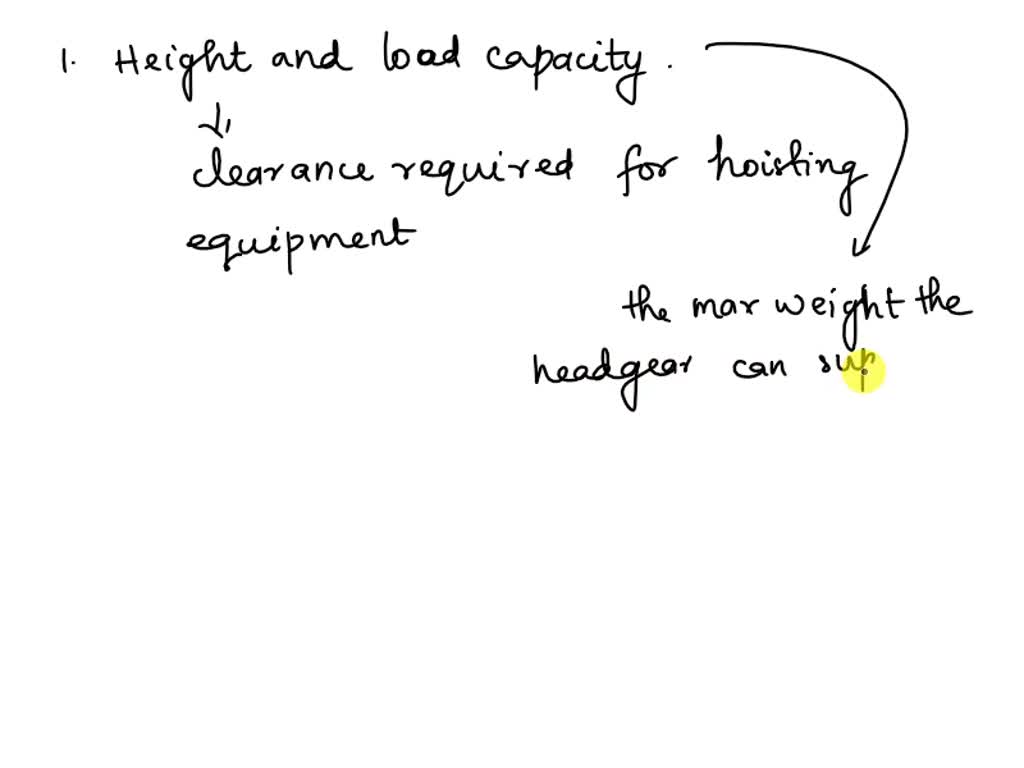 1. Height and load capacity.
clearance required for hoisting
equipment
the max weight the
headgear can sup